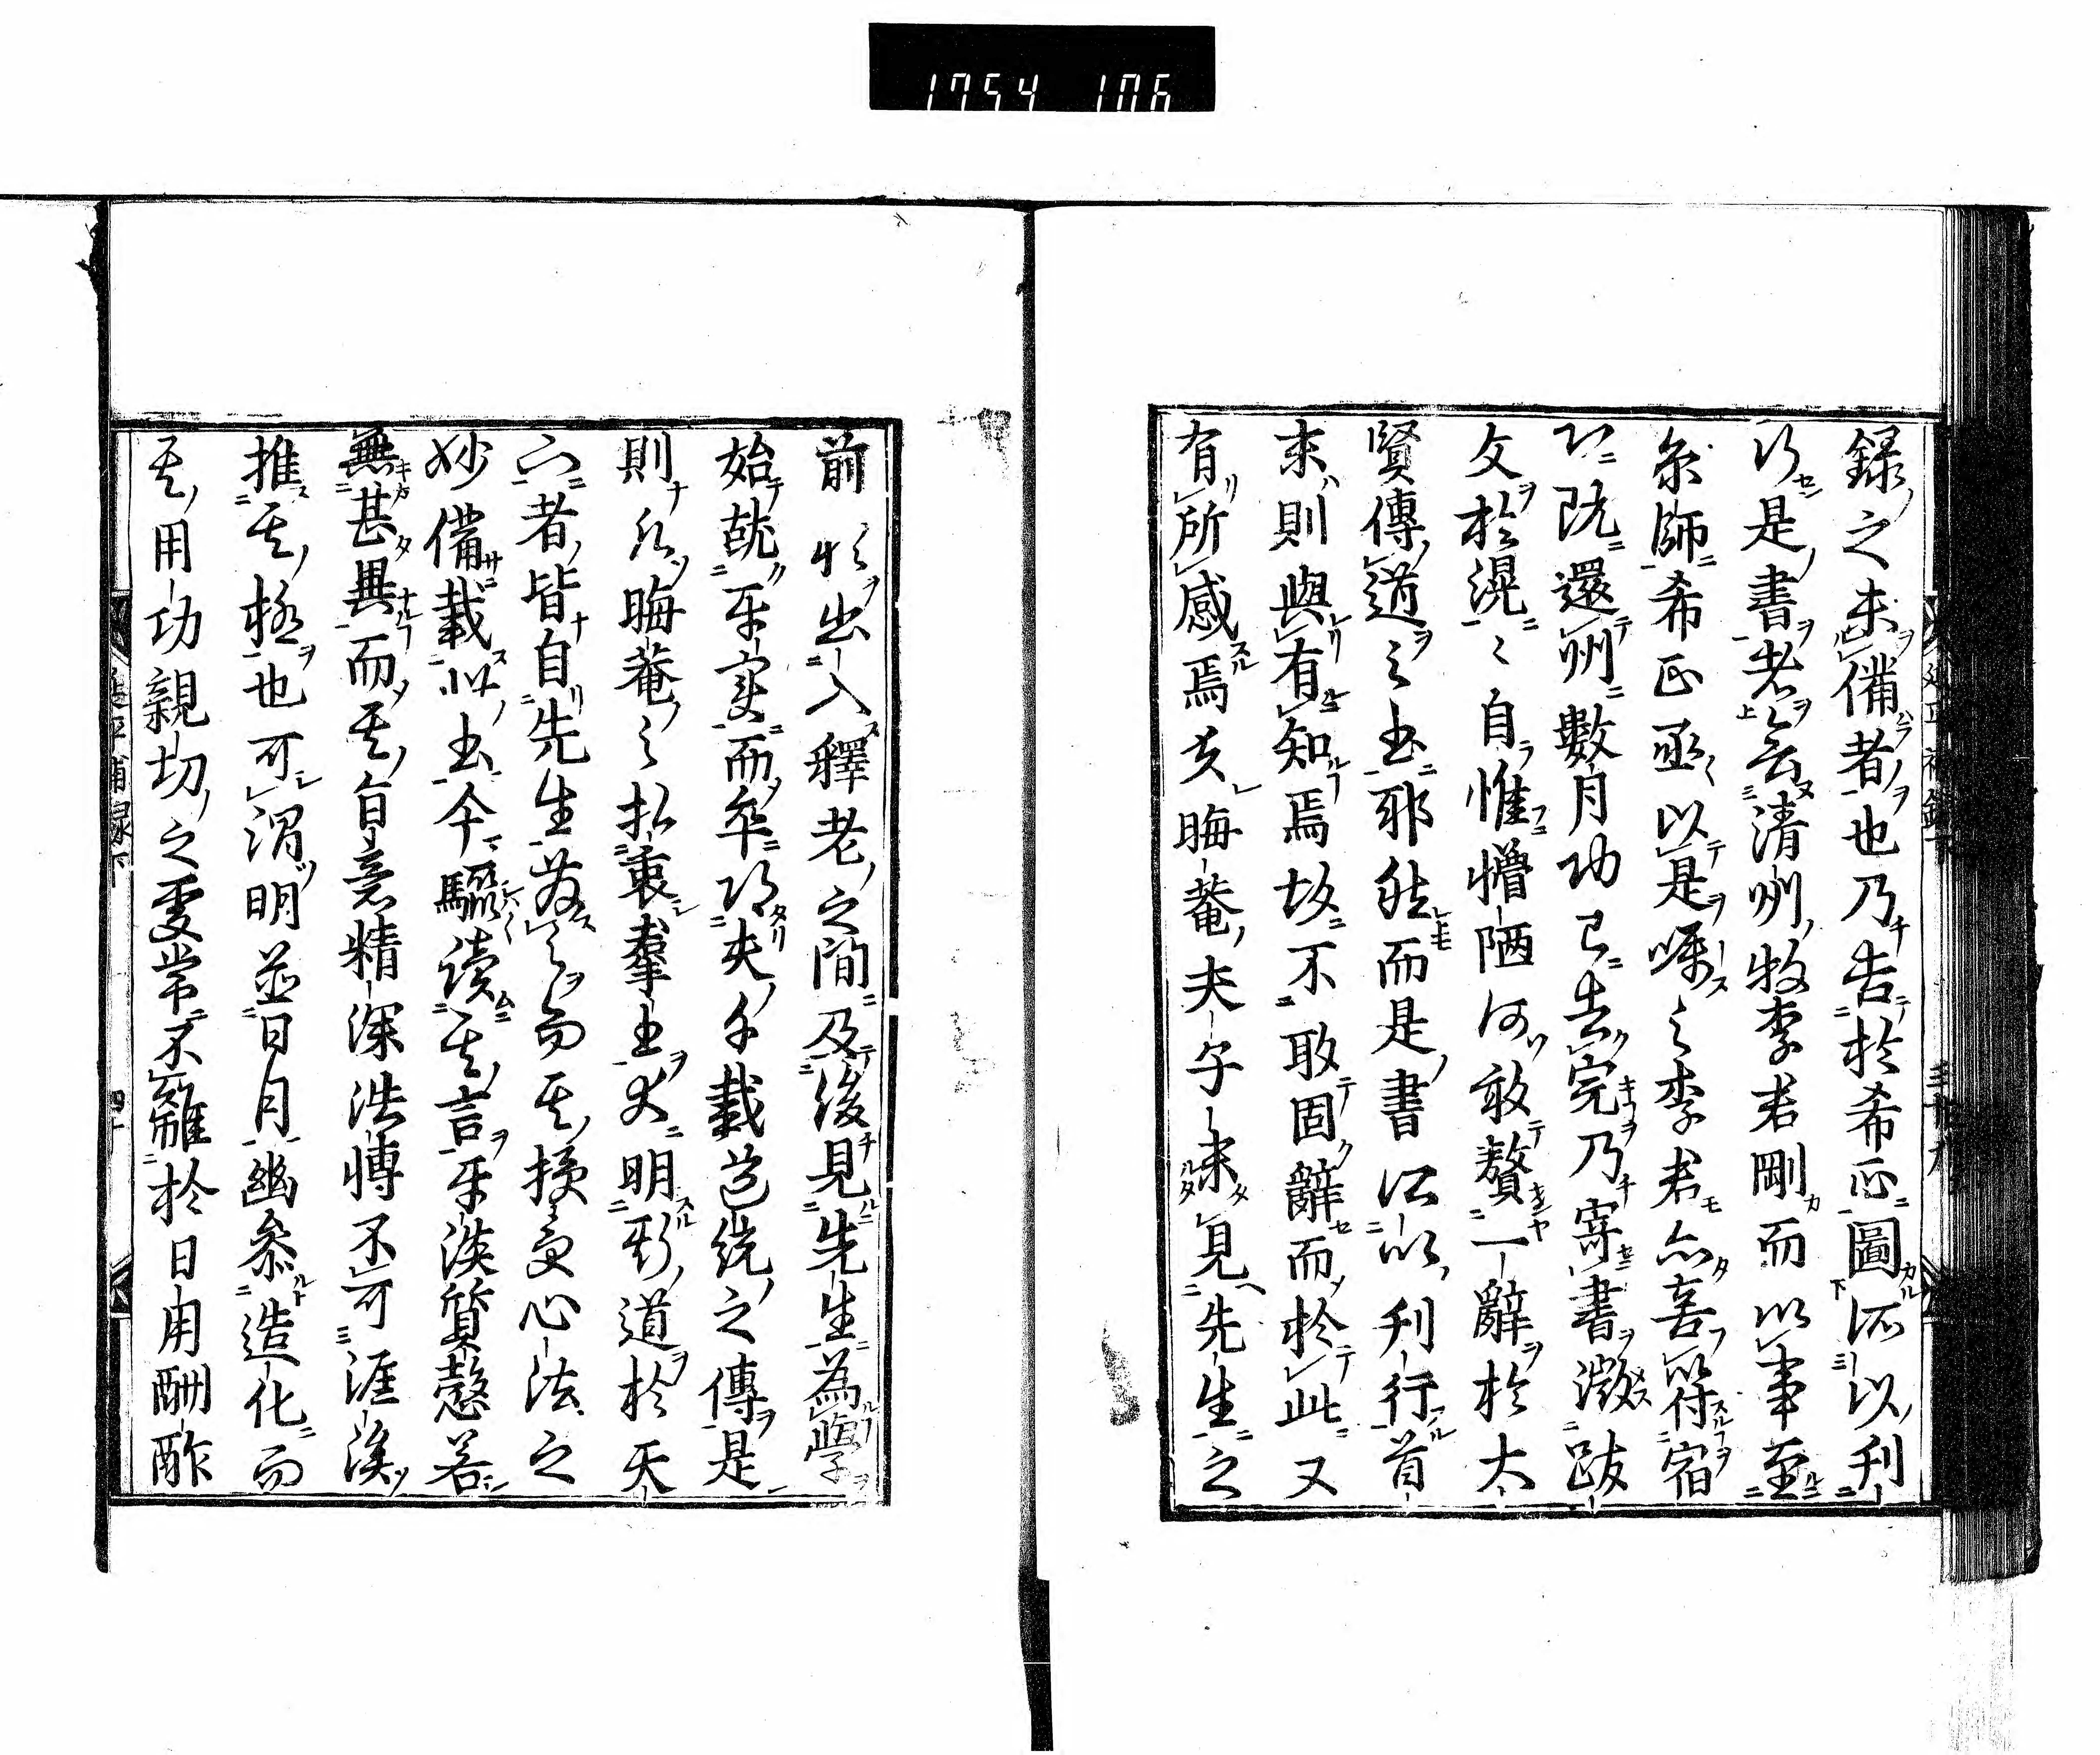 1754 106
録之未備者也乃告於希正圖所以刊
行是書者会清州牧李君剛而以事至
京師希正亟以是嘱之李君亦喜符宿
心既還州數月功已告完乃寄書徴跋
文於滉〻自惟懵陋何敢贅一辭於大
賢傳道之書耶然而是書所以刊行首
末則與有知焉故不敢固辭而於此又
有所感焉夫晦菴夫子未見先生之
前猶出入釋老之間及後見先生為學
始就平實而卒得夫千載道統之傳是
則凡晦菴之折衷群書大明斯道於天
下者皆自先生發之而其授受心法之
妙備載此書今驟讀其言平淡質慤若
無甚異而其旨意精深浩博不可涯涘
推其極也可謂明並日月幽參造化而
其用功親切之處常不離於日用酬酢
延平補録下
四十